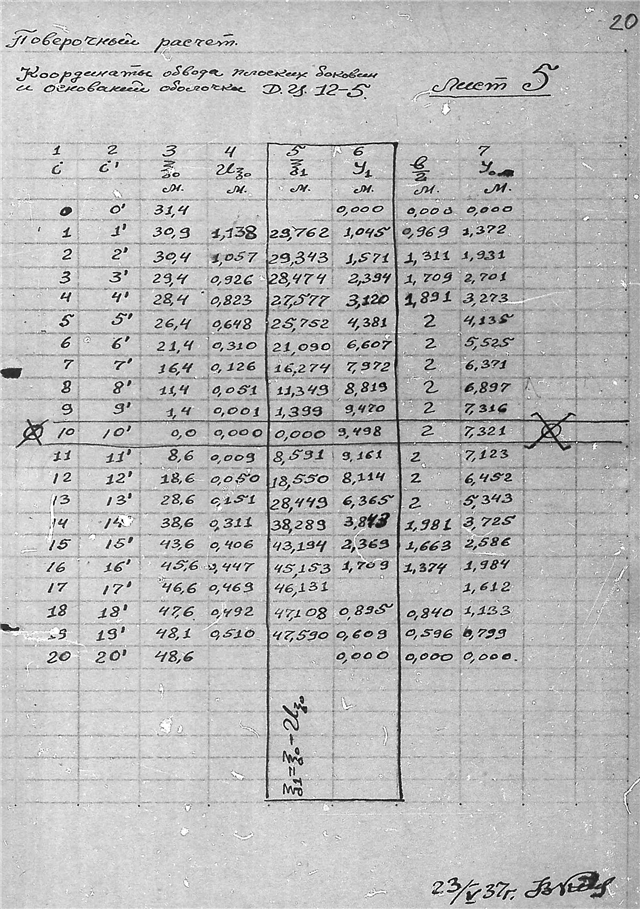 20
Поверочный расчет.
Координаты обвода плоских боковин
и оснований оболочки Д.И. 12-5.
Лист 5
1 2 3 4 5 6 7
i i' ξ₀ Uξ₀ ξ₁ y₁ в/2 y₀
м. м. м. м. м. м.
0 0' 31,4 0,000 0,000 0,000
1 1' 30,9 1,138 29,762 1,045 0,969 1,372
2 2' 30,4 1,057 29,343 1,571 1,311 1,931
3 3' 29,4 0,926 28,474 2,394 1,709 2,701
4 4' 28,4 0,823 27,577 3,120 1,891 3,273
5 5' 26,4 0,648 25,752 4,381 2 4,135
6 6' 21,4 0,310 21,090 6,607 2 5,525
7 7' 16,4 0,126 16,274 7,972 2 6,371
8 8' 11,4 0,051 11,349 8,819 2 6,897
9 9' 1,4 0,001 1,399 9,470 2 7,316
10 10' 0,0 0,000 0,000 9,498 2 7,321
11 11' 8,6 0,009 8,591 9,161 2 7,123
12 12' 18,6 0,050 18,550 8,114 2 6,452
13 13' 28,6 0,151 28,449 6,365 2 5,343
14 14' 38,6 0,311 38,289 3,843 1,981 3,725
15 15' 43,6 0,406 43,194 2,369 1,663 2,586
16 16' 45,6 0,447 45,153 1,709 1,374 1,984
17 17' 46,6 0,469 46,131 1,612
18 18' 47,6 0,492 47,108 0,895 0,840 1,133
19 19' 48,1 0,510 47,590 0,609 0,596 0,799
20 20' 48,6 0,000 0,000 0,000.
ξ₁=ξ₀-Uξ₀
23/V 37г.